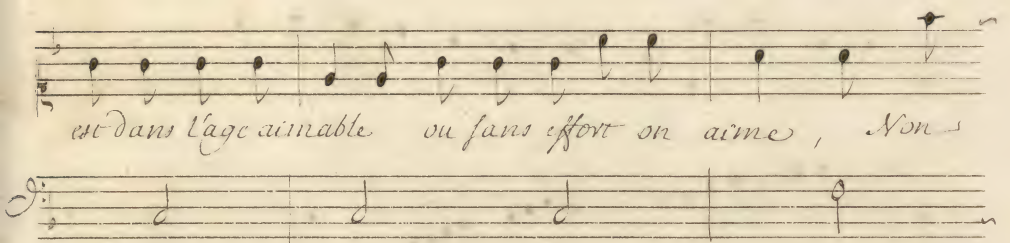 est dans l'age aimable ou sans effort on aime, Non